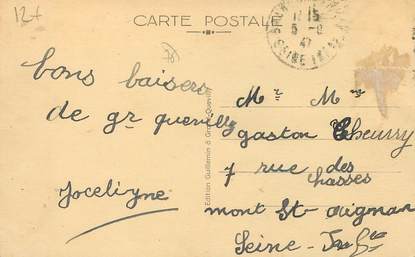 12+
CARTE POSTALE
12 15
5 - 9
47
SEINE INF
bons baisers
de gr quevilly
Jocelyne
Edition Guillemin à Grand-Quevilly
Mr Mme
gaston Theurry
7 rue des
chasses
mont St aignan
Seine-Infre